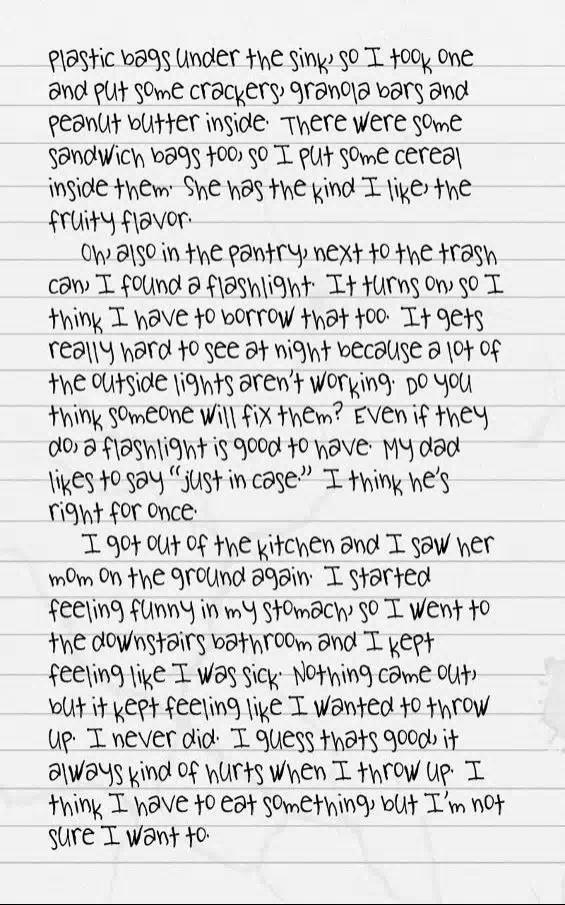 plastic bags under the sink, so I took one
and put some crackers, granola bars and
peanut butter inside. There were some
sandwich bags too, so I put some cereal
inside them. She has the kind I like, the
fruity flavor.
Oh, also in the pantry, next to the trash
can, I found a flashlight. It turns on, so I
think I have to borrow that too. It gets
really hard to see at night because a lot of
the outside lights aren't working. Do you
think someone will fix them? Even if they
do, a flashlight is good to have. My dad
likes to say "just in case." I think he's
right for once.
I got out of the kitchen and I saw her
mom on the ground again. I started
feeling funny in my stomach, so I went to
the downstairs bathroom and I kept
feeling like I was sick. Nothing came out,
but it kept feeling like I wanted to throw
up. I never did. I guess thats good, it
always kind of hurts when I throw up. I
think I have to eat something, but I'm not
sure I want to.